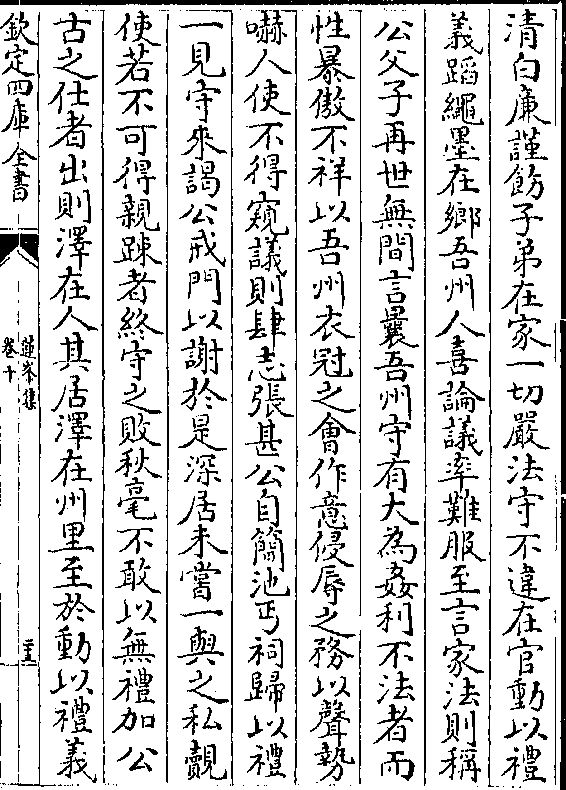 清白廉謹飭子弟在家一切嚴法守不違在官動以禮
義蹈繩墨在鄉吾州人喜論議率難服至言家法則稱
公父子再世無間言曩吾州守有大為姦利不法者而
性暴傲不祥以吾州衣冠之會作意侵辱之務以聲勢
嚇人使不得窺議則肆志張甚公自簡池丐祠歸以禮
一見守來謁公戒門以謝於是深居未嘗一與之私覿
使若不可得親踈者終守之敗秋毫不敢以無禮加公
古之仕者出則澤在人其居澤在州里至於動以禮義
欽定四庫全書
蓮峯集
卷十